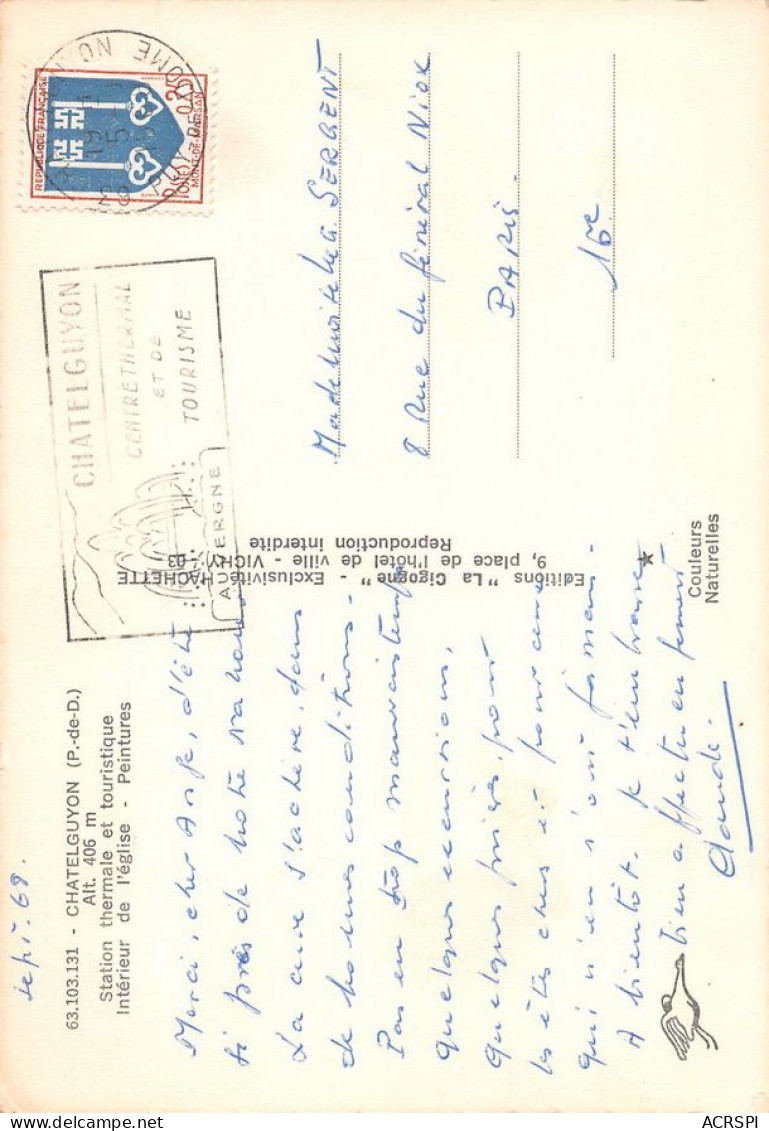 sept. 68.
63.103.131 - CHATELGUYON (P.-de-D.)
Alt. 406 m
Station thermale et touristique
Intérieur de l'église - Peintures
Merci, cher Ange, d'être
si près de notre
La cure s'achève, dans
de bonnes conditions.
Pas en trop mauvais temps
quelques excursions,
quelques prières, pour
les êtres chers et pour ceux
qui n'en n'ont jamais.
A bientôt. Je t'embrasse
bien affectueusement
Claude.
Editions "La Cigogne" - Exclusivité HACHETTE
9, place de l'hôtel de ville - VICHY - 03
Reproduction interdite
Couleurs
Naturelles
CHATELGUYON
CENTRE THERMAL
ET DE
TOURISME
AUVERGNE
REPUBLIQUE FRANÇAISE
0,20
POSTES
MONT-DE-MARSAN
PUY DE DOME
Mademoiselle G. SERGENT
8 Rue du Général Niox
PARIS.
16e
ACRSPI